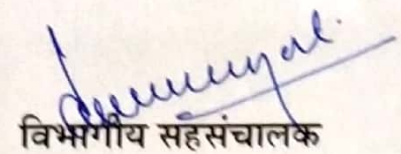 विभागीय सहसंचालक